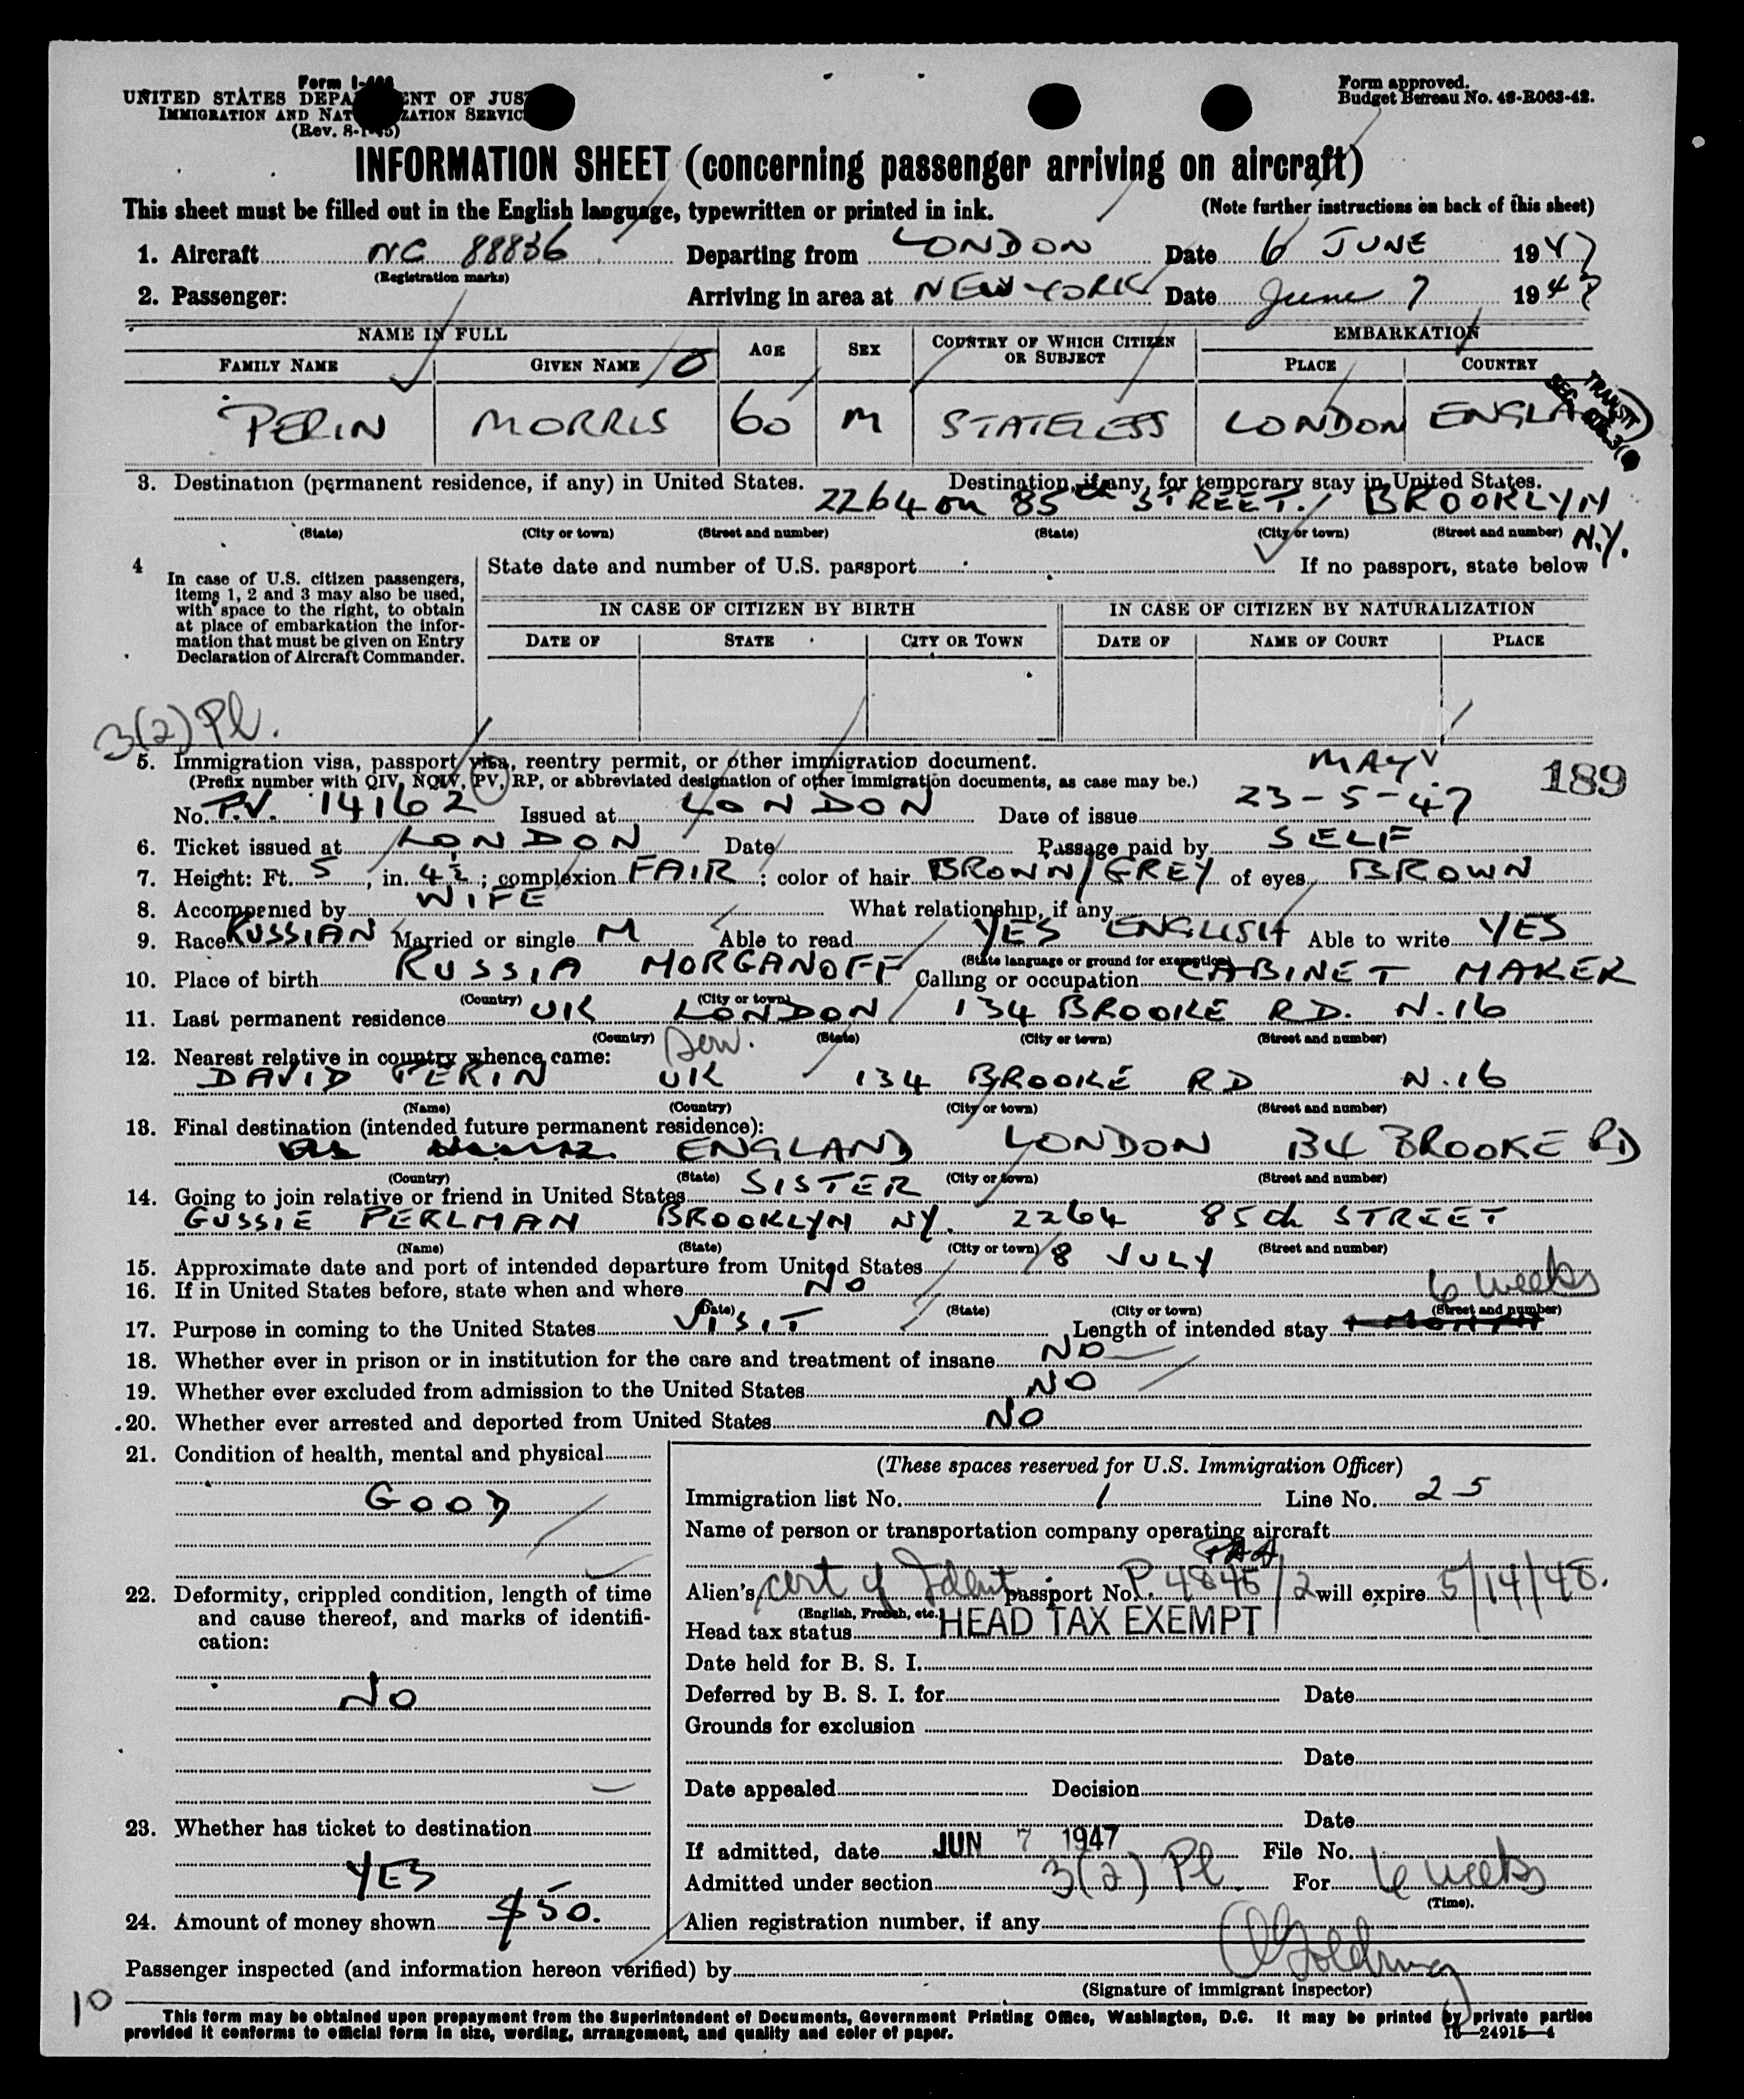 Form I-466
UNITED STATES DEPARTMENT OF JUSTICE
IMMIGRATION AND NATURALIZATION SERVICE
(Rev. 8-1-45)
Form approved.
Budget Bureau No. 43-R063-42.
INFORMATION SHEET (concerning passenger arriving on aircraft)
This sheet must be filled out in the English language, typewritten or printed in ink. (Note further instructions on back of this sheet)
1. Aircraft NC 88836 Departing from LONDON Date 6 JUNE 1947
(Registration marks)
2. Passenger: Arriving in area at NEW YORK Date June 7 1947
NAME IN FULL AGE SEX COUNTRY OF WHICH CITIZEN OR SUBJECT EMBARKATION
FAMILY NAME GIVEN NAME PLACE COUNTRY
PERIN MORRIS 60 M STATELESS LONDON ENGLAND
TRANSIT
3. Destination (permanent residence, if any) in United States. Destination, if any, for temporary stay in United States.
2264 on 85th STREET. BROOKLYN
N.Y.
(State) (City or town) (Street and number) (State) (City or town) (Street and number)
4 In case of U.S. citizen passengers, items 1, 2 and 3 may also be used, with space to the right, to obtain at place of embarkation the information that must be given on Entry Declaration of Aircraft Commander.
State date and number of U.S. passport If no passport, state below
IN CASE OF CITIZEN BY BIRTH IN CASE OF CITIZEN BY NATURALIZATION
DATE OF STATE CITY OR TOWN DATE OF NAME OF COURT PLACE
3(2) Pl.
5. Immigration visa, passport visa, reentry permit, or other immigration document. MAY
(Prefix number with QIV, NQIV, PV, RP, or abbreviated designation of other immigration documents, as case may be.) 189
No. P.V. 14162 Issued at LONDON Date of issue 23-5-47
6. Ticket issued at LONDON Date Passage paid by SELF
7. Height: Ft. 5, in. 4½; complexion FAIR; color of hair BROWN/GREY of eyes BROWN
8. Accompanied by WIFE What relationship, if any
9. Race RUSSIAN Married or single M Able to read YES ENGLISH Able to write YES
(State language or ground for exemption)
10. Place of birth RUSSIA MORGANOFF Calling or occupation CABINET MAKER
(Country) (City or town)
11. Last permanent residence UK LONDON 134 BROOKE RD. N.16
(Country) (State) (City or town) (Street and number)
12. Nearest relative in country whence came:
DAVID PERIN UK 134 BROOKE RD N.16
(Name) (Country) (City or town) (Street and number)
13. Final destination (intended future permanent residence):
ENGLAND LONDON 134 BROOKE RD
(Country) (State) (City or town) (Street and number)
14. Going to join relative or friend in United States SISTER
GUSSIE PERLMAN BROOKLYN NY. 2264 85th STREET
(Name) (State) (City or town) (Street and number)
15. Approximate date and port of intended departure from United States 8 JULY
16. If in United States before, state when and where NO
(Date) (State) (City or town) (Street and number)
6 weeks
17. Purpose in coming to the United States VISIT Length of intended stay 1 MONTH
18. Whether ever in prison or in institution for the care and treatment of insane NO
19. Whether ever excluded from admission to the United States NO
20. Whether ever arrested and deported from United States NO
21. Condition of health, mental and physical
GOOD
22. Deformity, crippled condition, length of time and cause thereof, and marks of identification:
NO
23. Whether has ticket to destination
YES
24. Amount of money shown $50.
(These spaces reserved for U.S. Immigration Officer)
Immigration list No. 1 Line No. 25
Name of person or transportation company operating aircraft
PAA
Alien's cert of Ident passport No. P.4845/2 will expire 5/14/48.
(English, French, etc.)
Head tax status HEAD TAX EXEMPT
Date held for B. S. I.
Deferred by B. S. I. for Date
Grounds for exclusion
Date
Date appealed Decision
Date
If admitted, date JUN 7 1947 File No.
Admitted under section 3(2) Pl For 6 weeks
(Time).
Alien registration number, if any
Passenger inspected (and information hereon verified) by
(Signature of immigrant inspector)
10
This form may be obtained upon prepayment from the Superintendent of Documents, Government Printing Office, Washington, D.C. It may be printed by private parties
provided it conforms to official form in size, wording, arrangement, and quality and color of paper. 16—24915-4